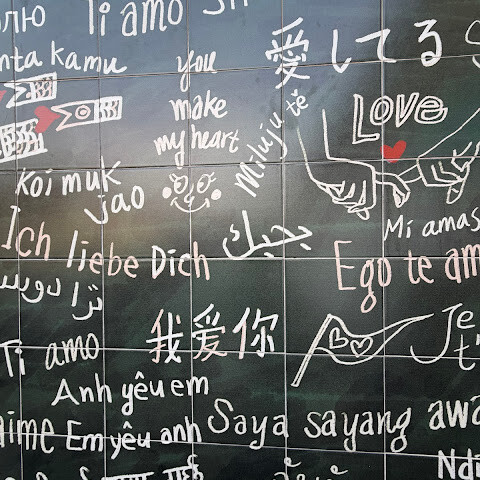 Ti amo
you
make
my heart
愛してる
Miluju tě
LOVE
Koi muk
Jao
Mi amas
Ich liebe Dich
بحبك
Ego te am
ترا دوس
我爱你
Je
t'
Ti amo
Anh yêu em
Saya sayang awa
aime
Em yêu anh
Ndi